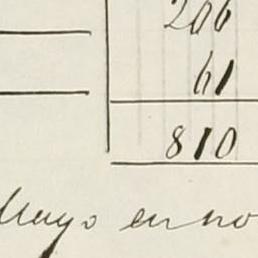 206
61
810
Mayo en no